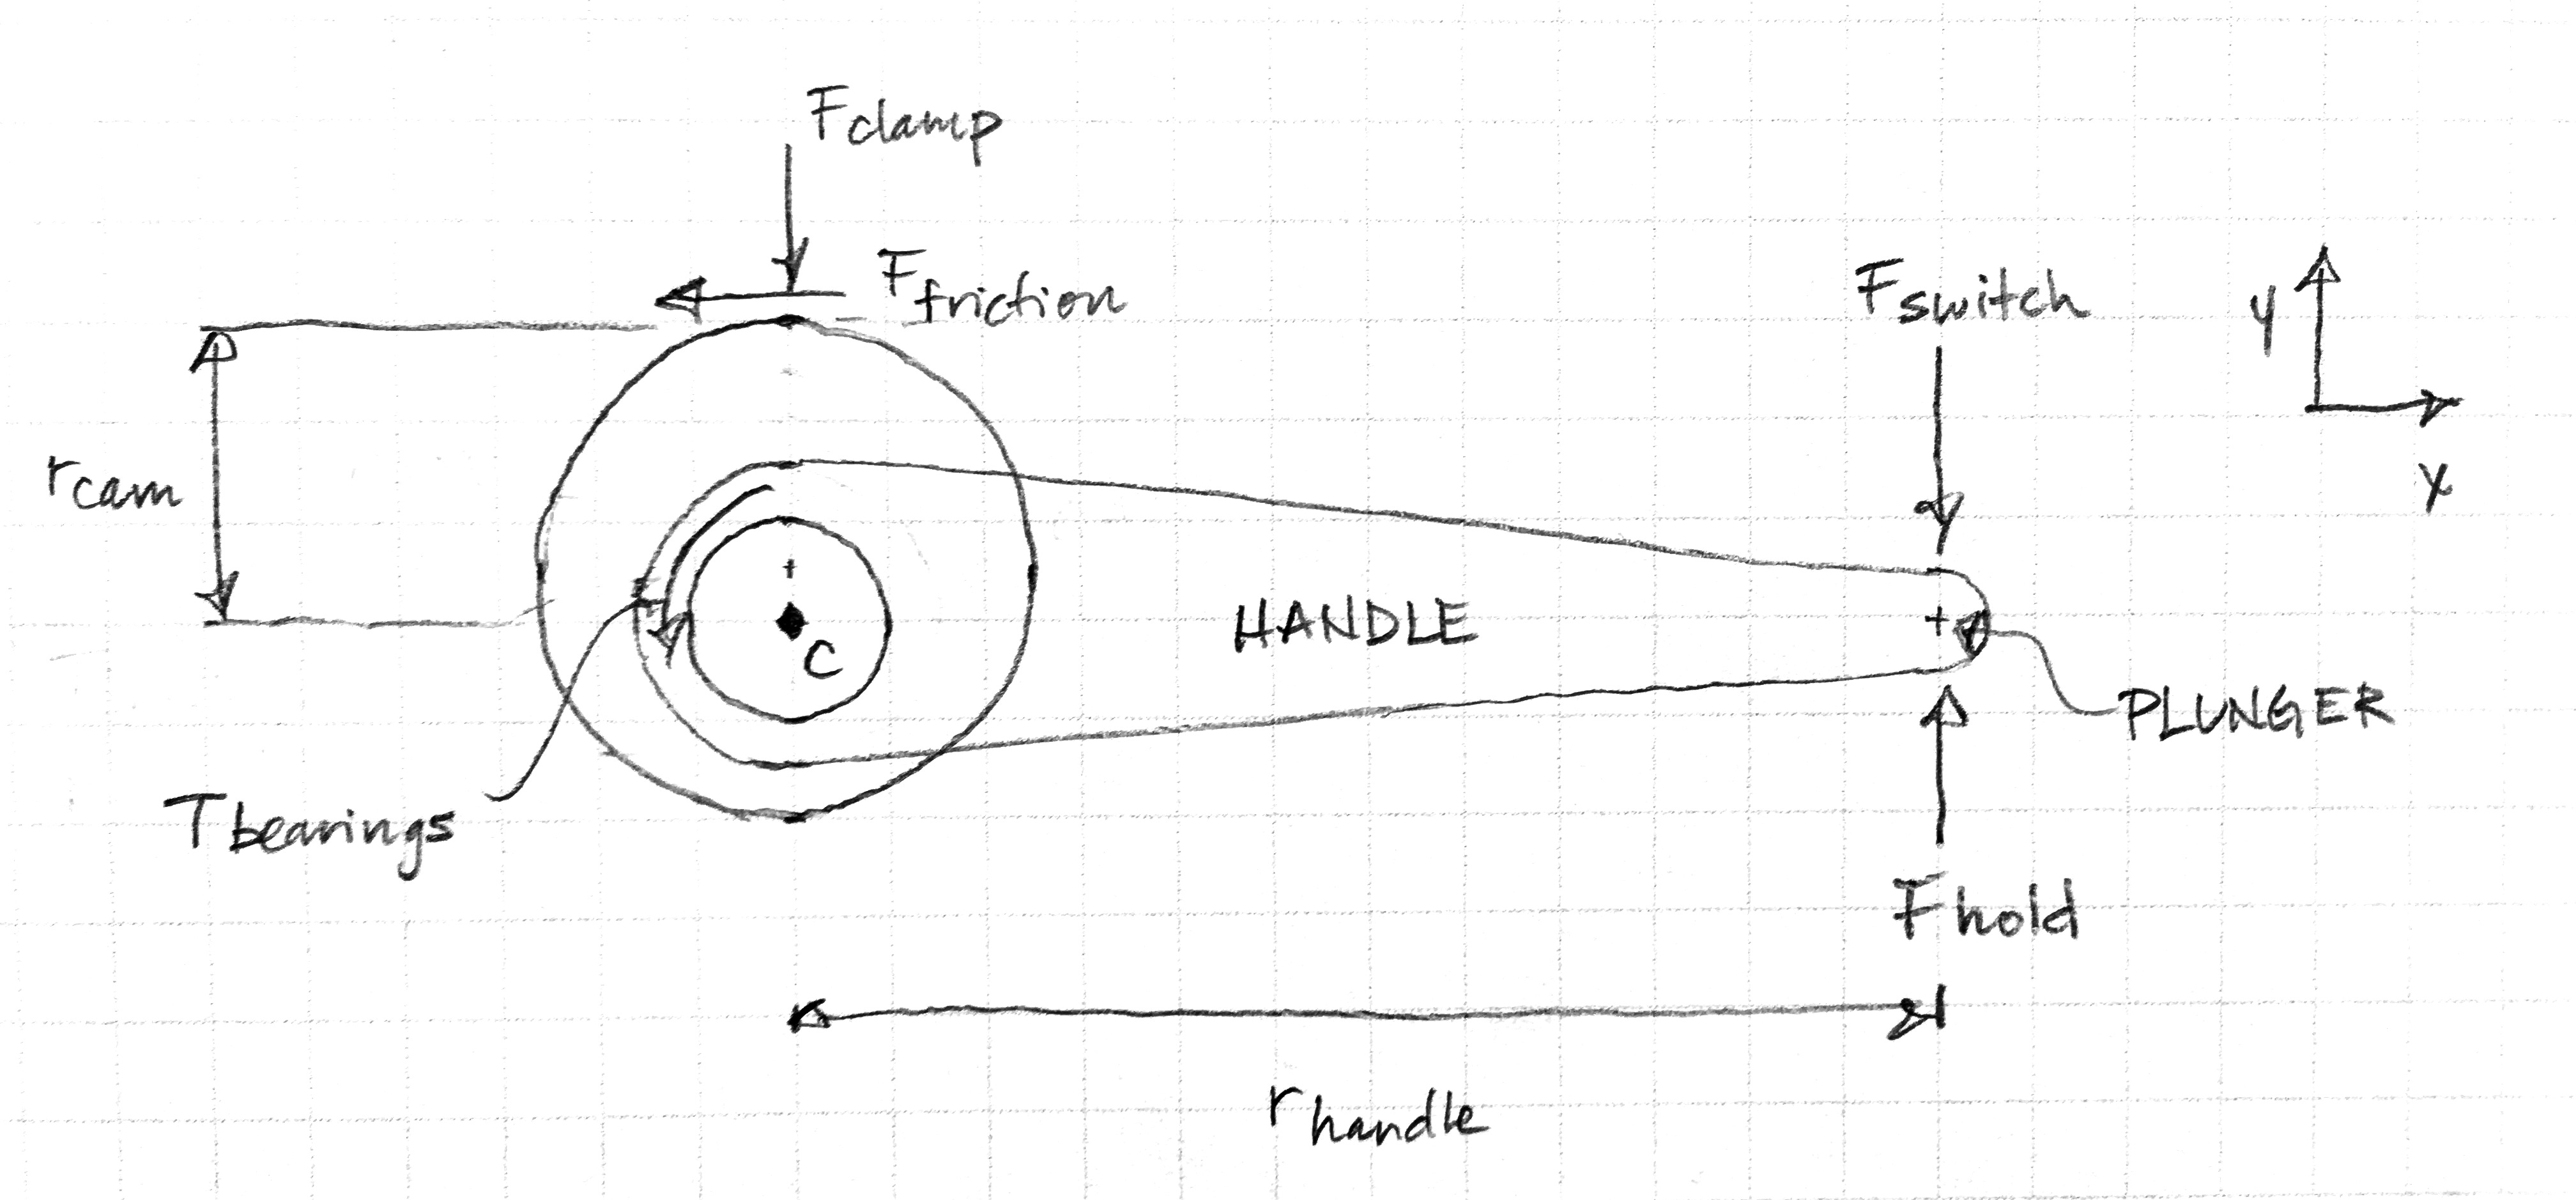 Fclamp
Ffriction
Fswitch
y
x
rcam
C
HANDLE
PLUNGER
Tbearings
Fhold
rhandle